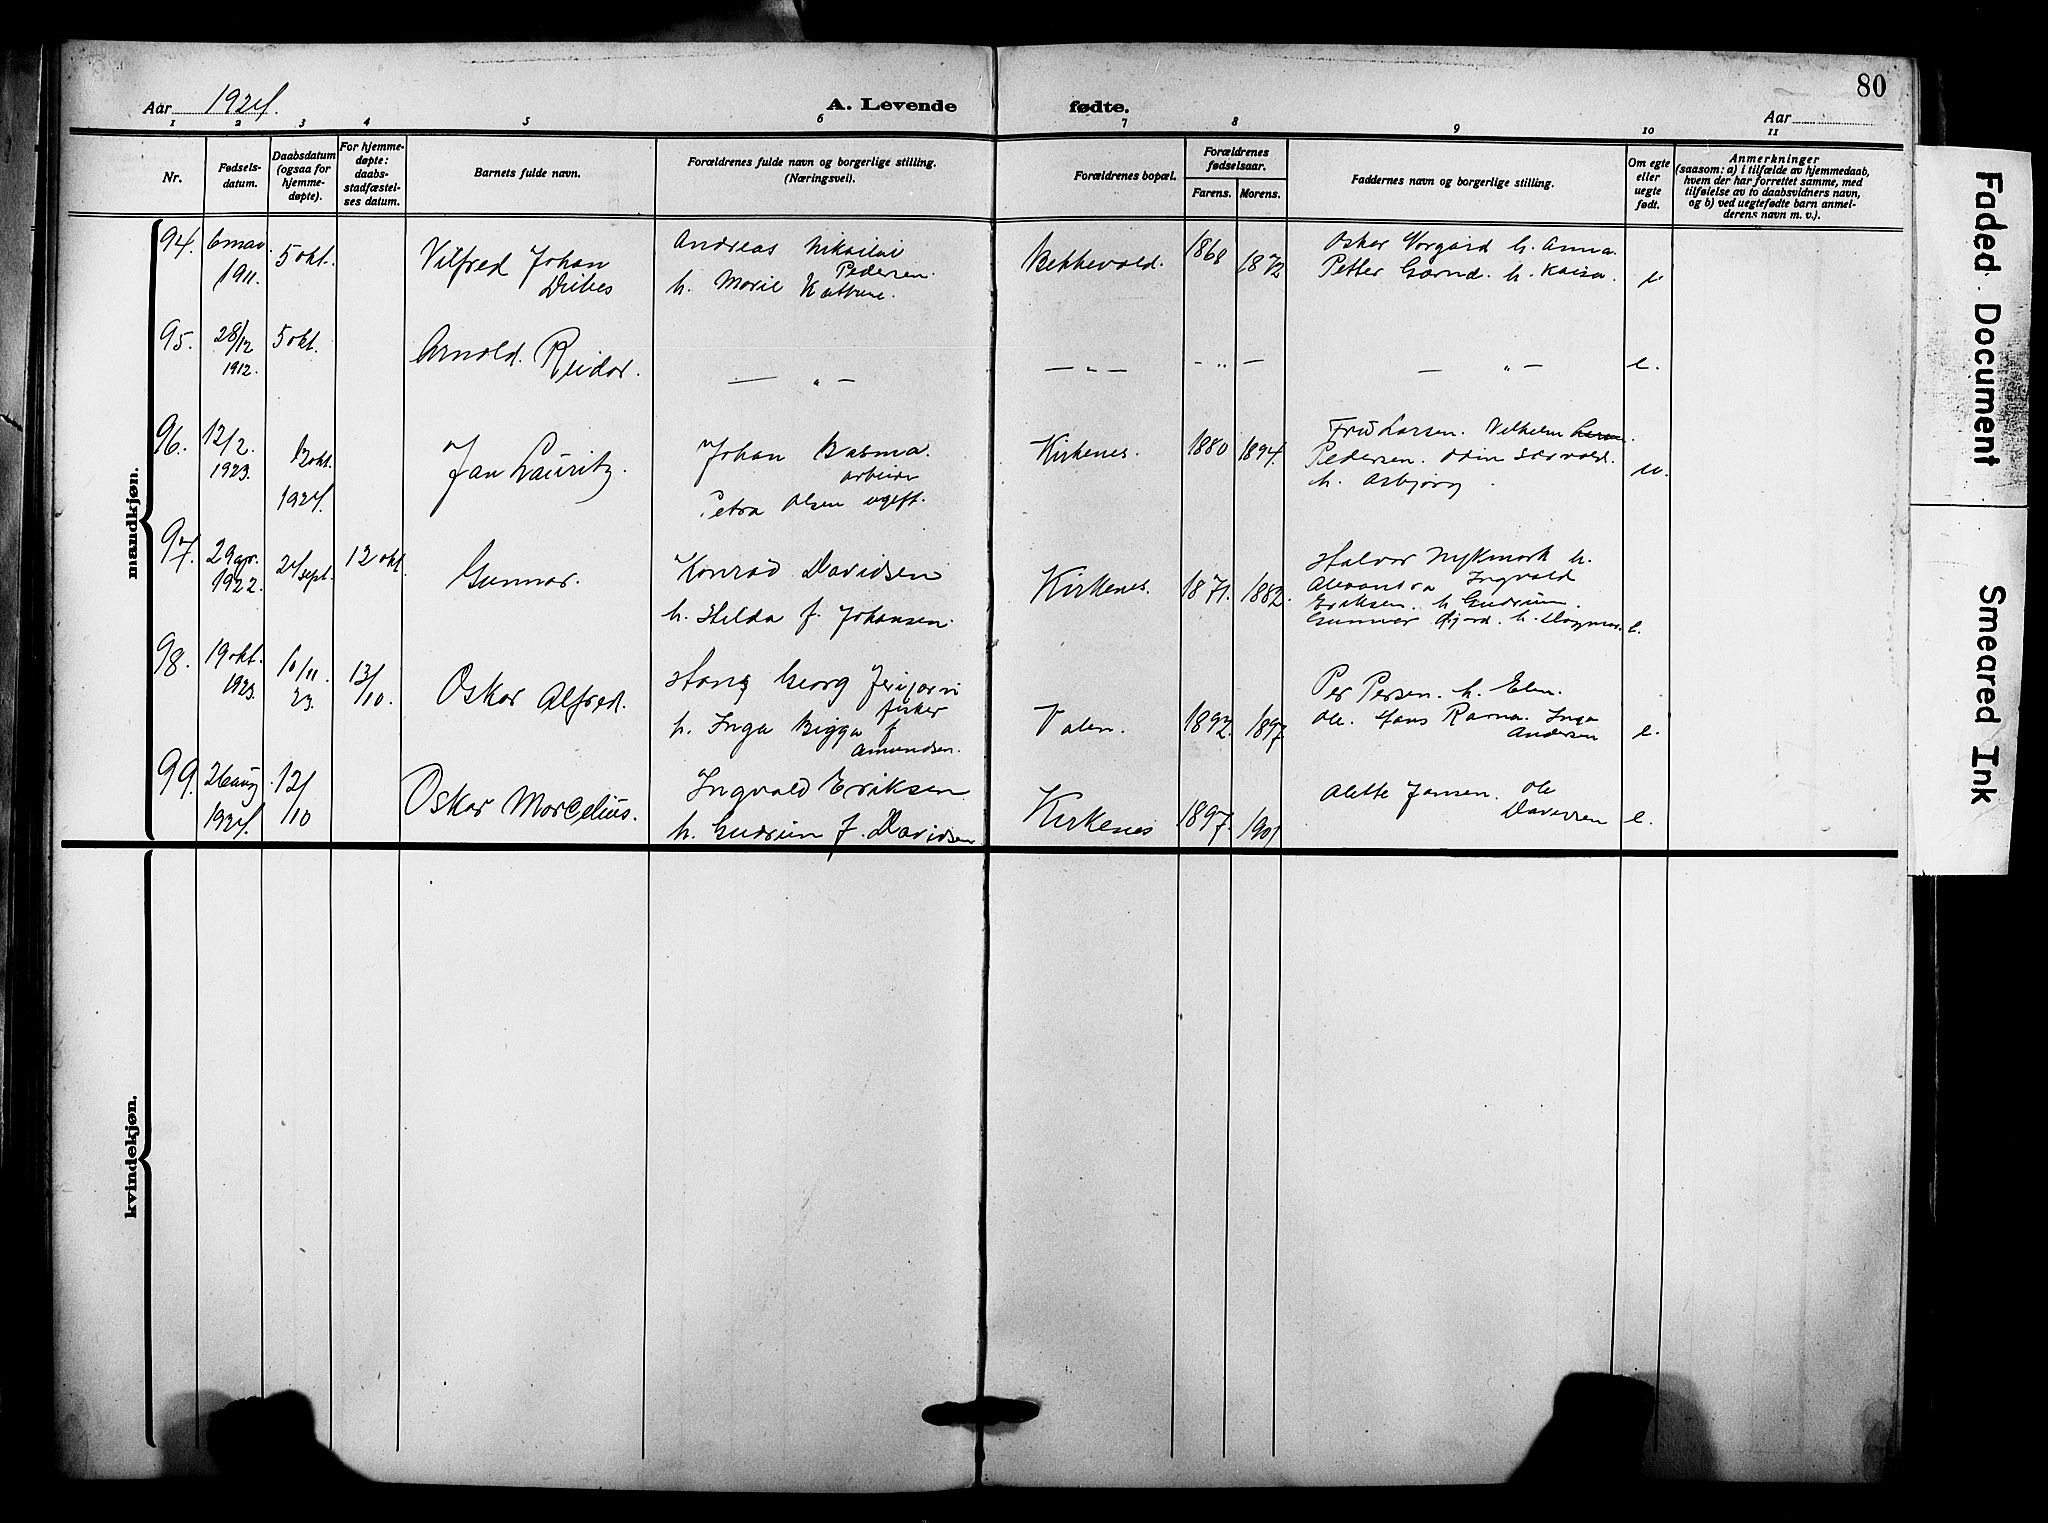 80
Aar 1924.
A. Levende fødte.
Aar
1 2 3 4 5 6 7 8 9 10 11
Nr.
Fødsels-
datum.
Daabsdatum
(ogsaa for
hjemme-
døpte).
For hjemme-
døpte:
daabs-
stadfæstel-
ses datum.
Barnets fulde navn.
Forældrenes fulde navn og borgerlige stilling.
(Næringsvei).
Forældrenes bopæl.
Forældrenes
fødselsaar.
Farens. Morens.
Faddernes navn og borgerlige stilling.
Om egte
eller
uegte
født.
Anmerkninger
(saasom: a) i tilfælde av hjemmedaab,
hvem der har forrettet samme, med
tilføielse av to daabsvidners navn,
og b) ved uegtefødte barn anmel-
derens navn m. v.).
mandkjøn.
94.
1911.
5 okt.
Vilfred Johan
Andreas Nikolai
Pedersen.
h. Marie
Bekkevold.
1868 1872
Oskar h. Anna
Petter h. Kaisa.
e
95.
28/12
1912.
5 okt.
Arnold Reidar.
— „ —
— „ —
— „ —
— „ —
e.
96.
12/2.
1923.
12 okt.
1924.
Jan Lauritz.
Johan Basma.
arbeider
Petra Olsen ugift.
Kirkenes.
1880 1894.
Larsen. Vilhelm
Pedersen. Odin
h. Asbjørg
u.
97.
29 apr.
1922.
21 sept.
12 okt.
Gunnar.
Konrad Davidsen
h. Hilda f. Johansen.
Kirkenes.
1871. 1882.
Halvar Nykmark h.
Ingvald
Eriksen. h. Gudrun.
Gunnar h. Dagmar.
e.
98.
19 okt.
1923.
10/11
23.
13/10.
Oskar Alfred.
Hans Georg
fisker
h. Inga Bigga f.
Amundsen.
Valen.
1892. 1897
Per Persen. h. Elen.
Ole. Hans Inga
Andersen
e.
99.
26 aug
1924.
12/10
Oskar Marcelius.
Ingvald Eriksen
h. Gudrun f. Davidsen
Kirkenes
1897. 1901
Alette Jansen. Ole
e.
kvindekjøn.
Faded Document
Smeared Ink